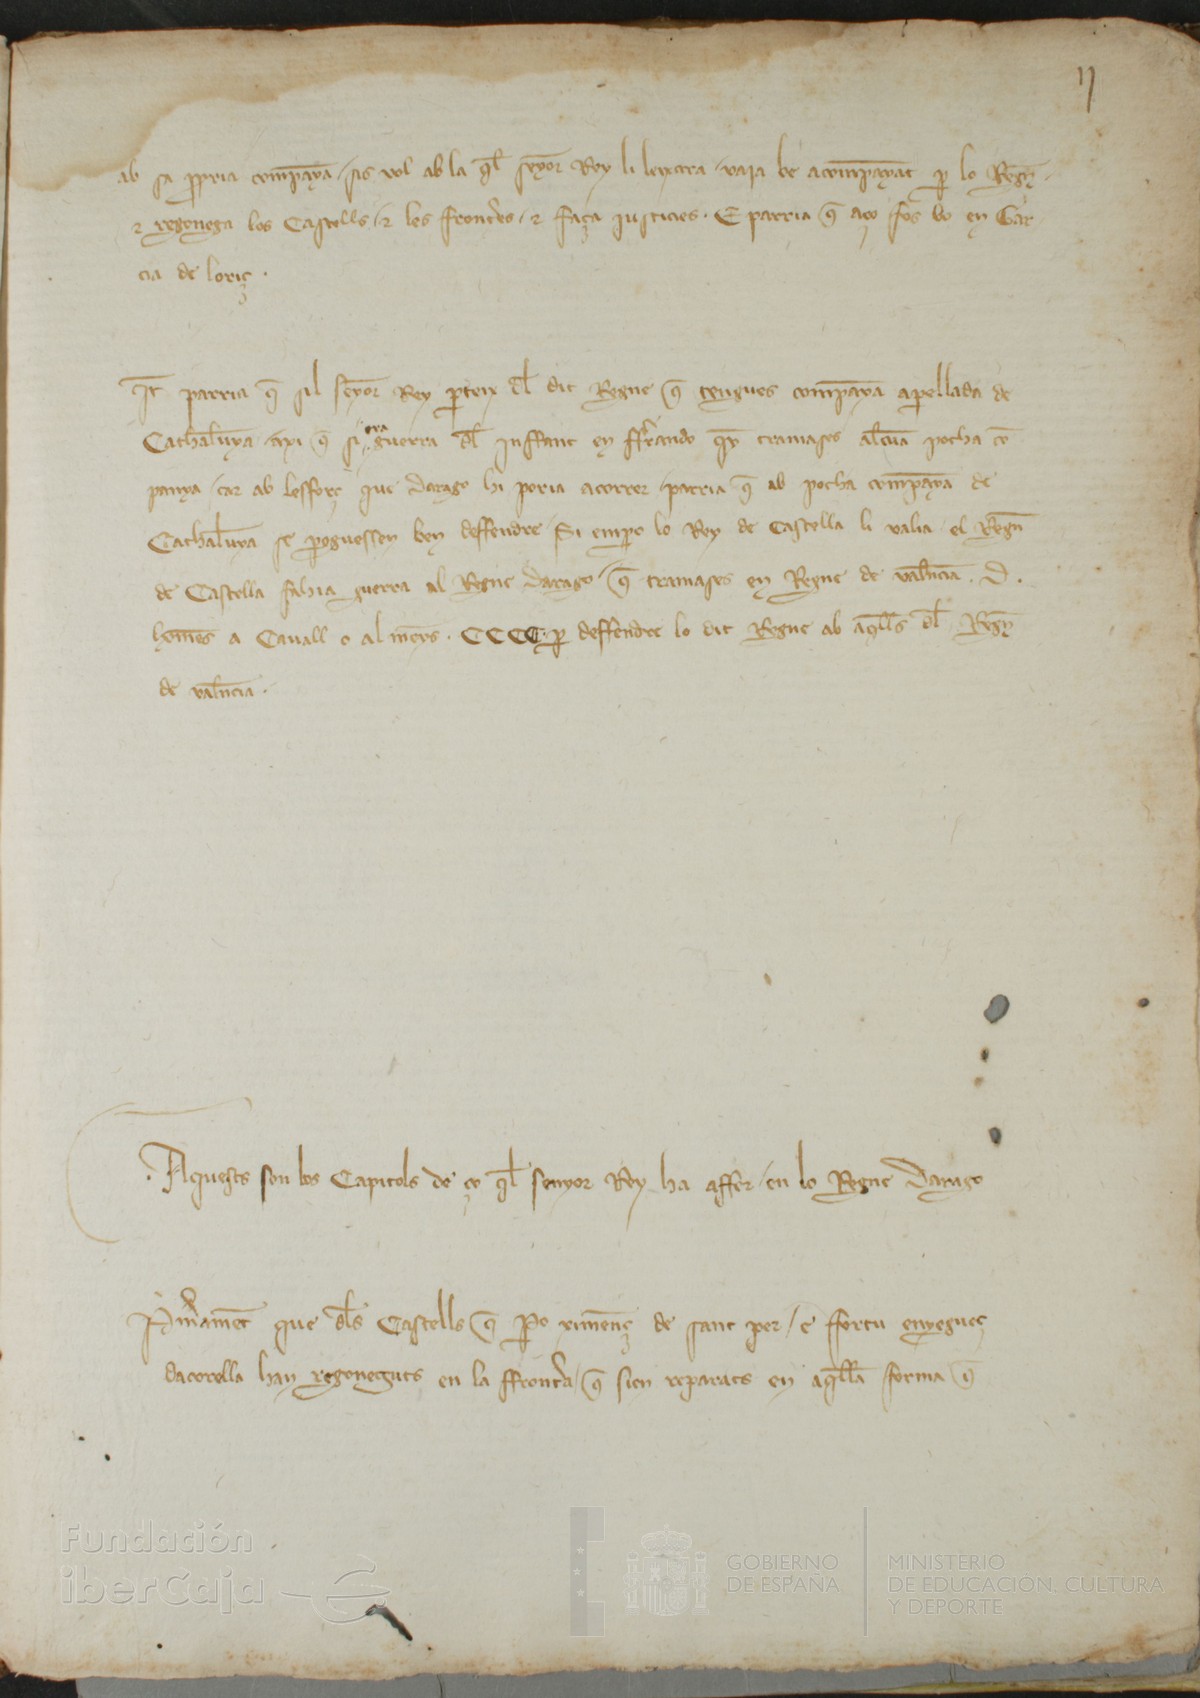 11
ab sa p̱pria compāya / sis vol ab la q̄l seȳor Rey li lexara / vaja be acompāyat p̱ lo Regn̄.
⁊ regonega los Castells / ⁊ les frontēs / ⁊ faça justicies. E parria q̄ aço fos bo en Gar
cia de loriç.
It̄ parria q̄ sil seȳor Rey p̱teix dl̄ dit Regne q̄ tengues compāya apellada de
Cathalūya axi q̄ si era guerra dl̄ Inffant en fferrando q̄ tramases alcūa pocha cō
panya / car ab lesforç que Darago hi poria acorrer / parria q̄ ab pocha compāya de
Cathalūya se p̱oguessen ben deffendre / Si emp̱o lo Rey de Castella li valia el Regn̄
de Castella fahia guerra al Regne Darago / q̄ tramases en Regne de valn̄cia .D.
homēs a Cavall o al mēys. CCCC. p̱ deffendre lo dit Regne ab aq̄lls dl̄ Regn̄
de valn̄cia.
. Aquests son los Capitols de ço q̄l senyor Rey ha affer / en lo Regne Darago
P̱mamēt que dl̄s Castells q̄ P̱o ximenēç de sant per / e ffortu enyegueç
dacorella han regoneguts en la ffront̄a / q̄ sien reparats en aq̄lla forma q̄
Fundación
iberCaja
GOBIERNO
DE ESPAÑA
MINISTERIO
DE EDUCACIÓN, CULTURA
Y DEPORTE